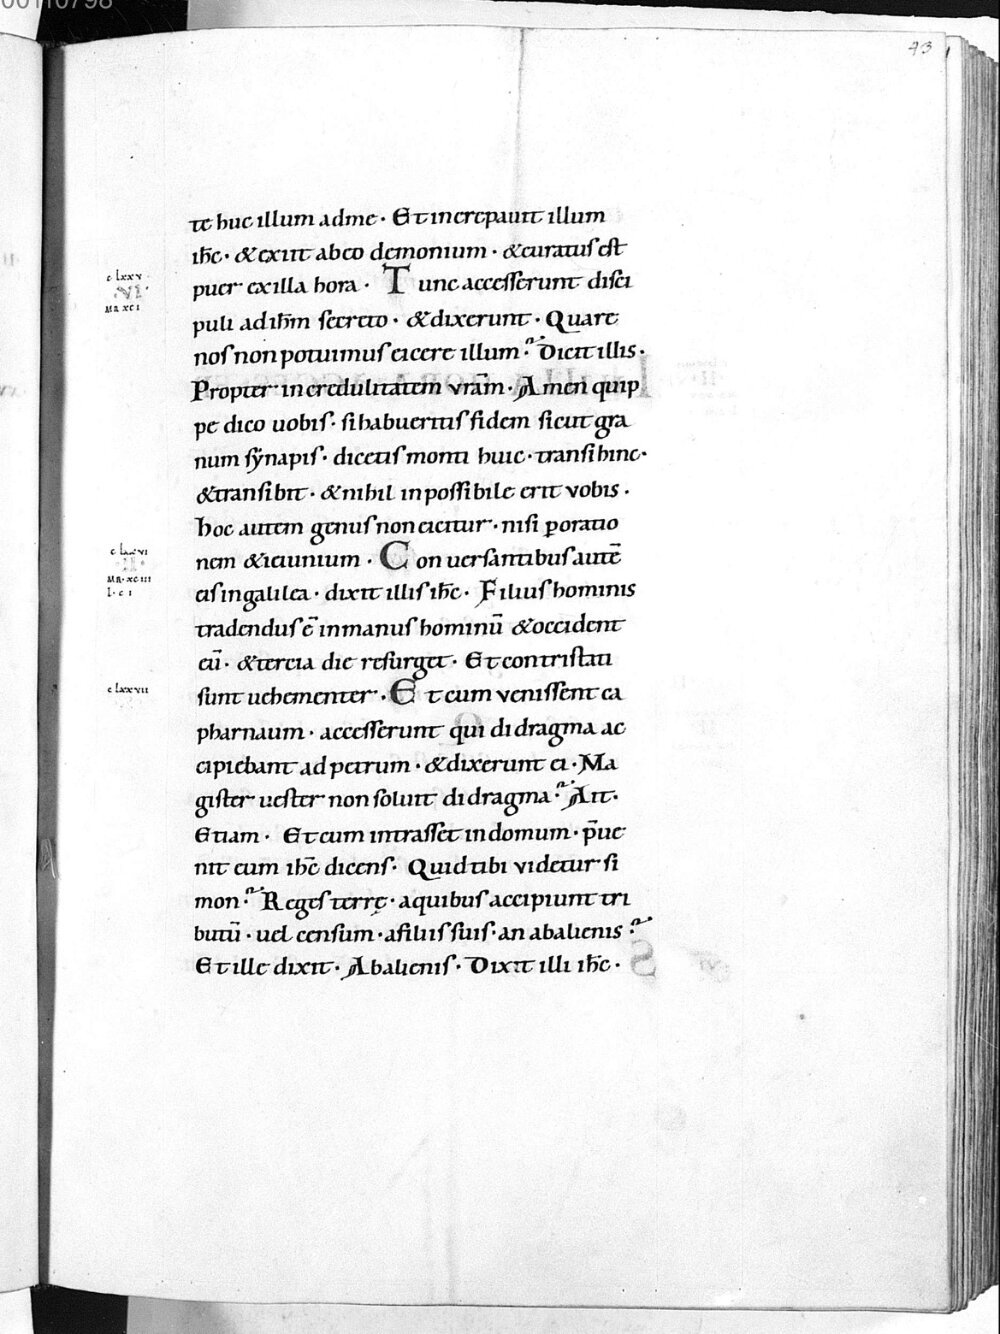 00110798
43
te huc illum adme · Et increpauit illum
ih̄c · &exiit abeo demonium · &curatus est
puer exilla hora · Tunc accesserunt disci
puli adih̄m secreto · &dixerunt · Quare
nos non potuimus eicere illum? Dicit illis ·
Propter incredulitatem vr̄am · Amen quip
pe dico uobis · si habueritis fidem sicut gra
num synapis · dicetis monti huic · transi hinc ·
&transibit · &nihil inpossibile erit vobis ·
hoc autem genus non eicitur · nisi ꝑ oratio
nem &ieiunium · Conuersantibus autē
eis ingalilea · dixit illis ih̄c · Filius hominis
tradendus ē inmanus hominū &occident
eū · &tercia die resurget · Et contristati
sunt uehementer · Et cum venissent ca
pharnaum · accesserunt qui didragma ac
cipiebant ad petrum · &dixerunt ei · Ma
gister uester non soluit didragma? Ait ·
Etiam · Et cum intrasset in domum · p̄ue
nit eum ih̄c dicens · Quid tibi videtur si
mon? Reges terrę · aquibus accipiunt tri
butū · uel censum · afiliis suis · an abalienis?
Et ille dixit · Abalienis · Dixit illi ih̄c ·
clxxv
VI
MR xci
clxxvi
II
MR · xciii
l · ci
clxxvii